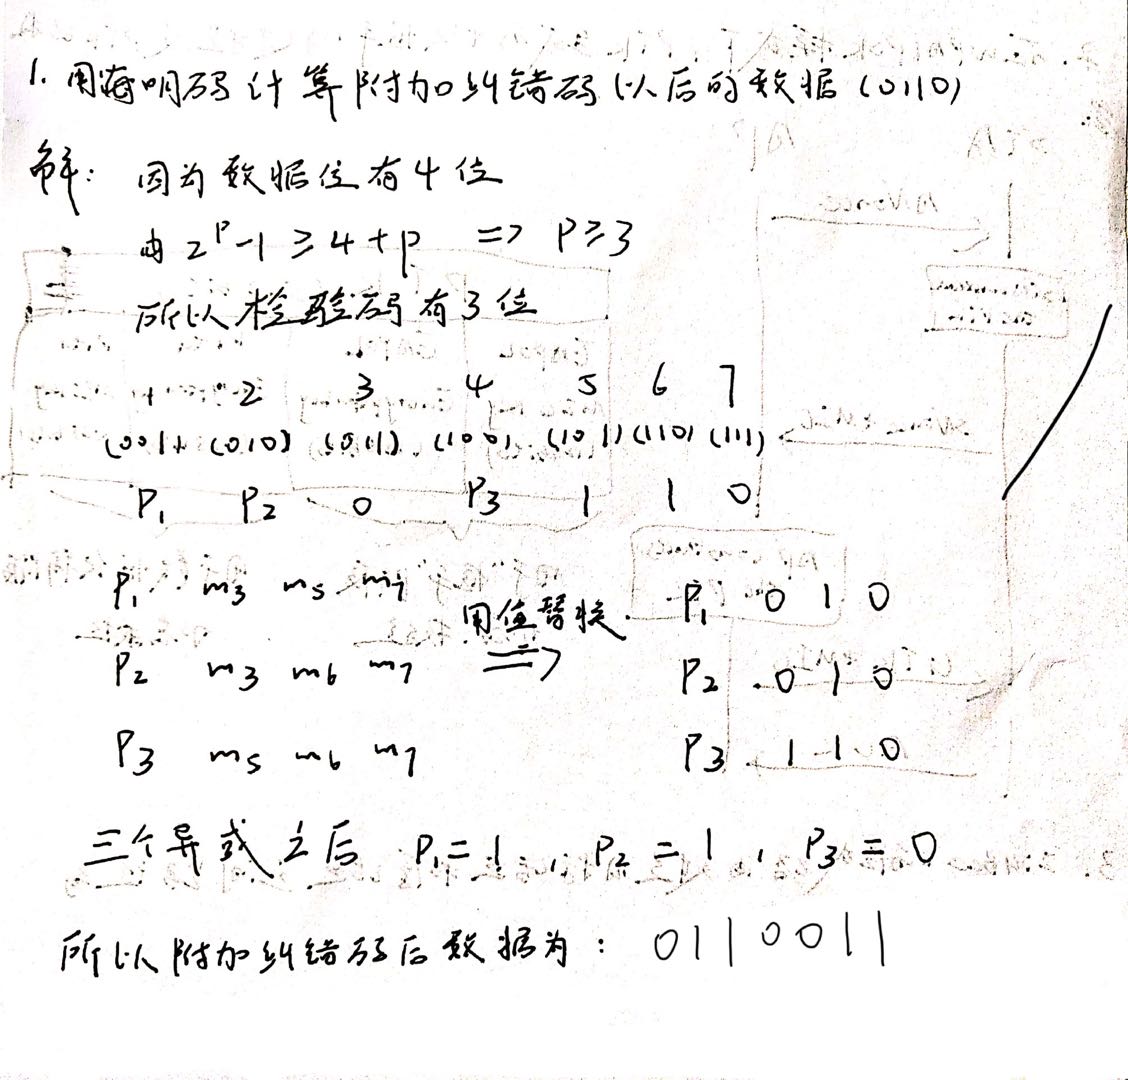 1. 用海明码计算附加纠错码以后的数据(0110)
解: 因为数据位有4位
由 2^P-1 ≥ 4+P => P≥3
所以检验码有3位
1 2 3 4 5 6 7
(001) (010) (011) (100) (101) (110) (111)
P1 P2 0 P3 1 1 0
P1 m3 m5 m7 用值替换 => P1 0 1 0
P2 m3 m6 m7 P2 0 1 0
P3 m5 m6 m7 P3 1 1 0
三个异或之后 P1=1, P2=1, P3=0
所以附加纠错码后数据为: 0110011